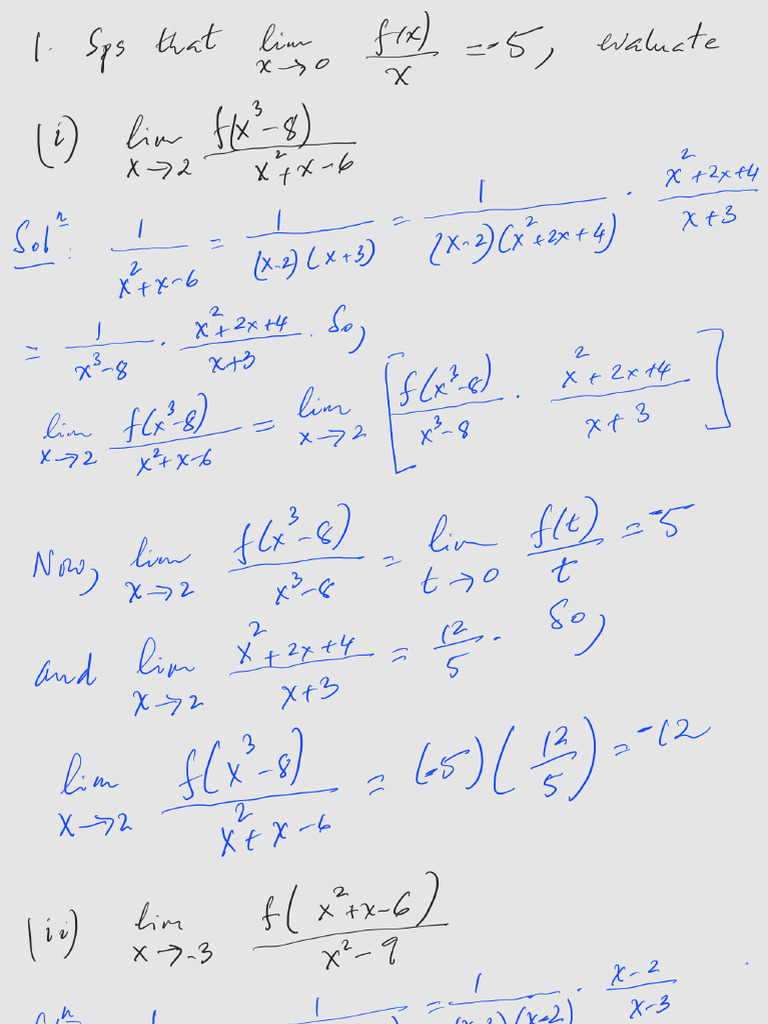 1. Sps that lim x→0 f(x)/x = -5, evaluate
(i) lim x→2 f(x³-8)/(x²+x-6)
Solⁿ: 1/(x²+x-6) = 1/((x-2)(x+3)) = 1/((x-2)(x²+2x+4)) · (x²+2x+4)/(x+3)
= 1/(x³-8) · (x²+2x+4)/(x+3). So,
lim x→2 f(x³-8)/(x²+x-6) = lim x→2 [f(x³-8)/(x³-8) · (x²+2x+4)/(x+3)]
Now, lim x→2 f(x³-8)/(x³-8) = lim t→0 f(t)/t = -5
and lim x→2 (x²+2x+4)/(x+3) = 12/5. So,
lim x→2 f(x³-8)/(x²+x-6) = (-5)(12/5) = -12
(ii) lim x→-3 f(x²+x-6)/(x²-9)
= 1 · (x-2)/(x-3)